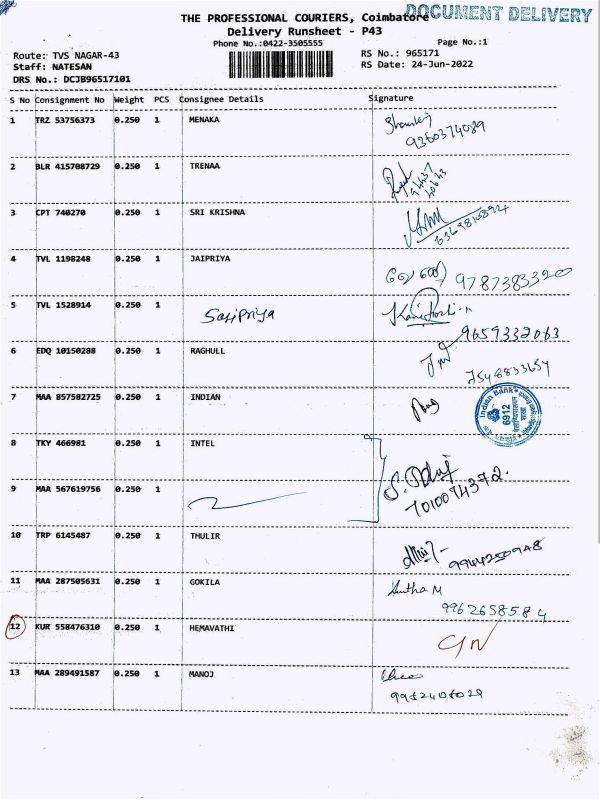 THE PROFESSIONAL COURIERS, Coimbatore
DOCUMENT DELIVERY
Delivery Runsheet - P43
Phone No.:0422-3505555
Page No.:1
Route: TVS NAGAR-43
RS No.: 965171
Staff: NATESAN
RS Date: 24-Jun-2022
DRS No.: DCJB96517101
S No Consignment No Weight PCS Consignee Details Signature
1 TRZ 53756373 0.250 1 MENAKA
9360374089
2 BLR 415708729 0.250 1 TRENAA
3 CPT 740270 0.250 1 SRI KRISHNA
4 TVL 1198248 0.250 1 JAIPRIYA
9787383320
5 TVL 1528914 0.250 1 Sasipriya
9659332063
6 EDQ 10150288 0.250 1 RAGHULL
7548833654
7 MAA 857582725 0.250 1 INDIAN
Indian Bank
6912
8 TKY 466981 0.250 1 INTEL
7010074372.
9 MAA 567619756 0.250 1
10 TRP 6145487 0.250 1 THULIR
11 MAA 287505631 0.250 1 GOKILA
9962658584
12 KUR 558476310 0.250 1 HEMAVATHI
13 MAA 289491587 0.250 1 MANOJ